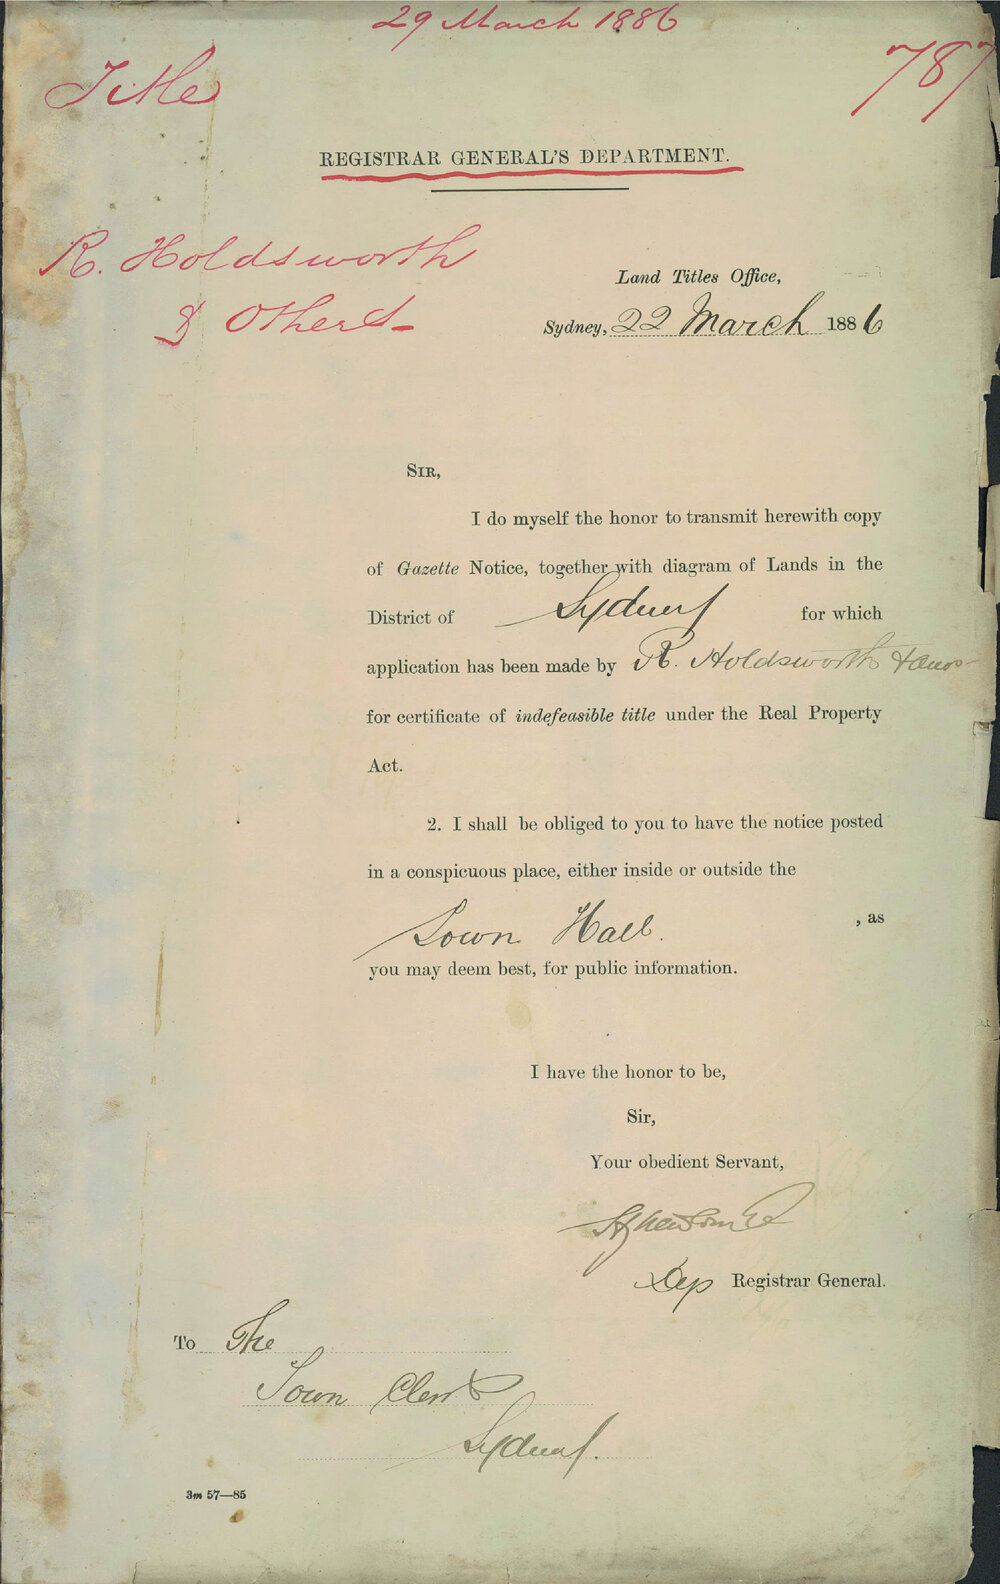 29 March 1886
Title
787
REGISTRAR GENERAL'S DEPARTMENT.
R. Holdsworth
& Others
Land Titles Office,
Sydney, 22 March 1886
SIR,
I do myself the honor to transmit herewith copy
of Gazette Notice, together with diagram of Lands in the
District of Sydney for which
application has been made by R. Holdsworth
for certificate of indefeasible title under the Real Property
Act.
2. I shall be obliged to you to have the notice posted
in a conspicuous place, either inside or outside the
Town Hall. , as
you may deem best, for public information.
I have the honor to be,
Sir,
Your obedient Servant,
Dep Registrar General.
To The
Town Clerk
Sydney.
3m 57—85